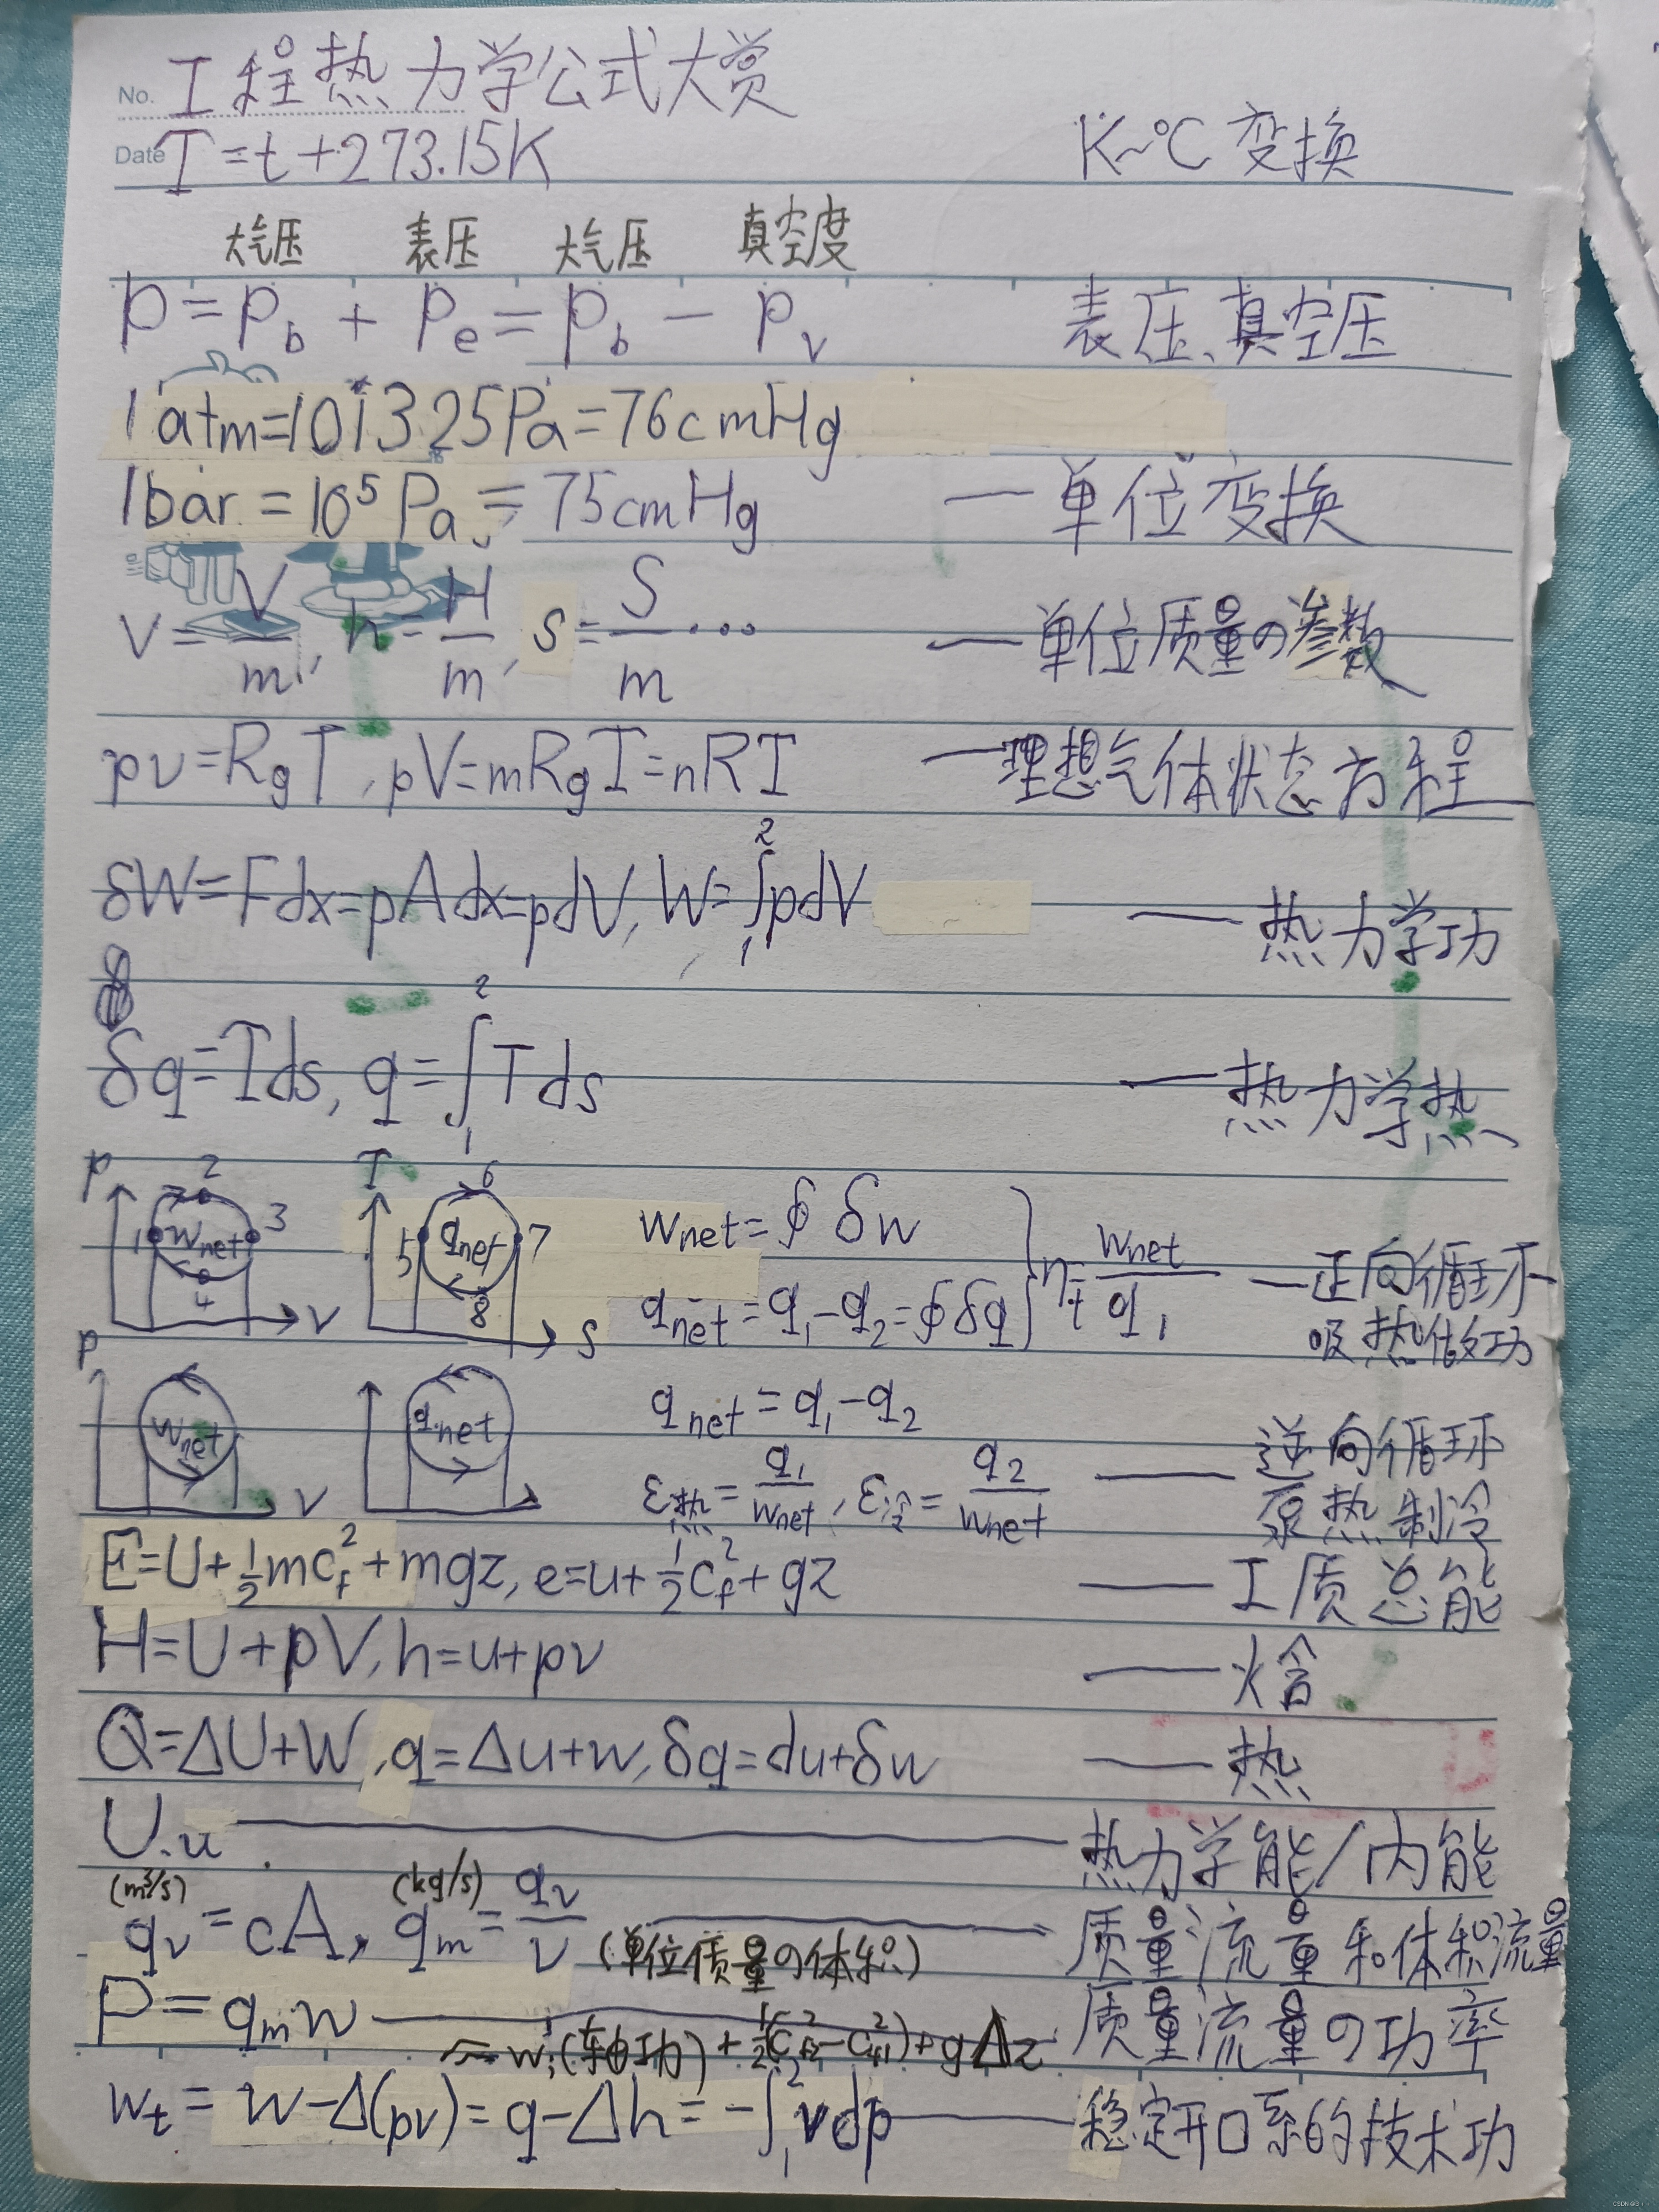 No. 工程热力学公式大赏
Date T=t+273.15K K~℃ 变换
大气压 表压 大气压 真空度
p=p_b + p_e = p_b - p_v 表压、真空压
1atm=101325Pa=76cmHg
1bar=10⁵Pa=75cmHg —单位变换
v=V/m, h=H/m, s=S/m… —单位质量の参数
pv=R_gT, pV=mR_gT=nRT —理想气体状态方程
δW=Fdx=pAdx=pdV, W=∫₁²pdV —热力学功
δq=Tds, q=∫₁²Tds —热力学热
p 1 2 3 4 w_net v T 5 6 7 8 q_net s w_net=∮δw
q_net=q₁-q₂=∮δq } η_t=w_net/q₁ —正向循环
吸热做功
p w_net v q_net q_net=q₁-q₂
ε热=q₁/w_net, ε冷=q₂/w_net —逆向循环
泵热制冷
E=U+½mc_f²+mgz, e=u+½c_f²+gz —工质总能
H=U+pV, h=u+pv —焓
Q=ΔU+W, q=Δu+w, δq=du+δw —热
U.u —热力学能/内能
(m³/s) (kg/s)
q_v=cA, q_m=q_v/v (单位质量の体积) —质量流量和体积流量
P=q_m w —质量流量の功率
w_i(轴功)+½(c_f2²-c_f1²)+gΔz
w_t=w-Δ(pv)=q-Δh=-∫₁²vdp —稳定开口系的技术功